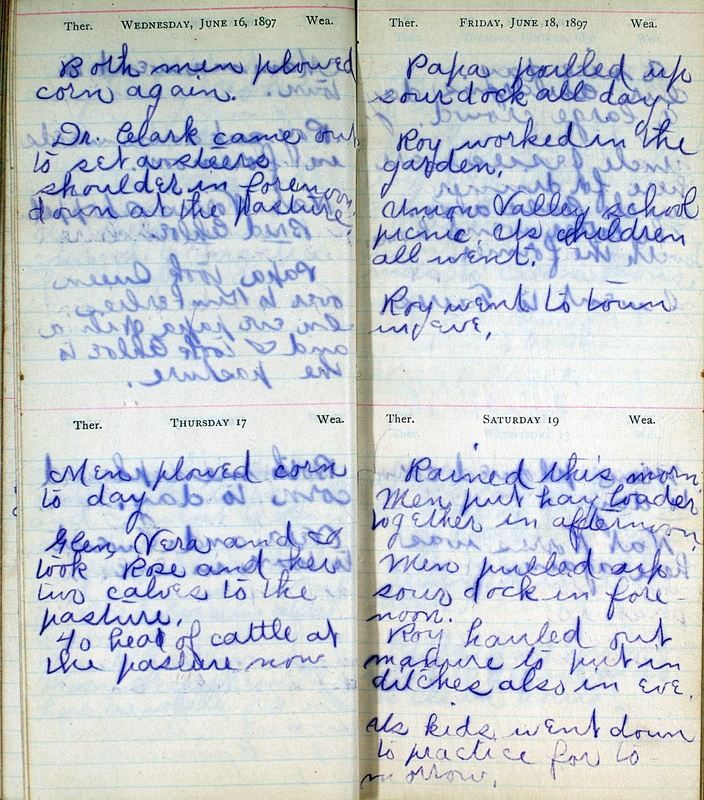 Ther. WEDNESDAY, JUNE 16, 1897 Wea.
Both men plowed
corn again.
Dr. Clark came out
to set a steers
shoulder in forenoon
down at the pasture.
Ther. THURSDAY 17 Wea.
Men plowed corn
to day
Glen, Vera and I
took Rose and her
two calves to the
pasture.
40 head of cattle at
the pasture now
Ther. FRIDAY, JUNE 18, 1897 Wea.
Papa pulled up
sour dock all day.
Roy worked in the
garden.
Union Valley school
picnic. Us children
all went.
Roy went to town
in eve.
Ther. SATURDAY 19 Wea.
Rained this morn
Men put hay loader
together in afternoon.
Men pulled up
sour dock in fore-
noon.
Roy hauled out
manure to put in
ditches also in eve.
Us kids went down
to practice for to-
morrow.